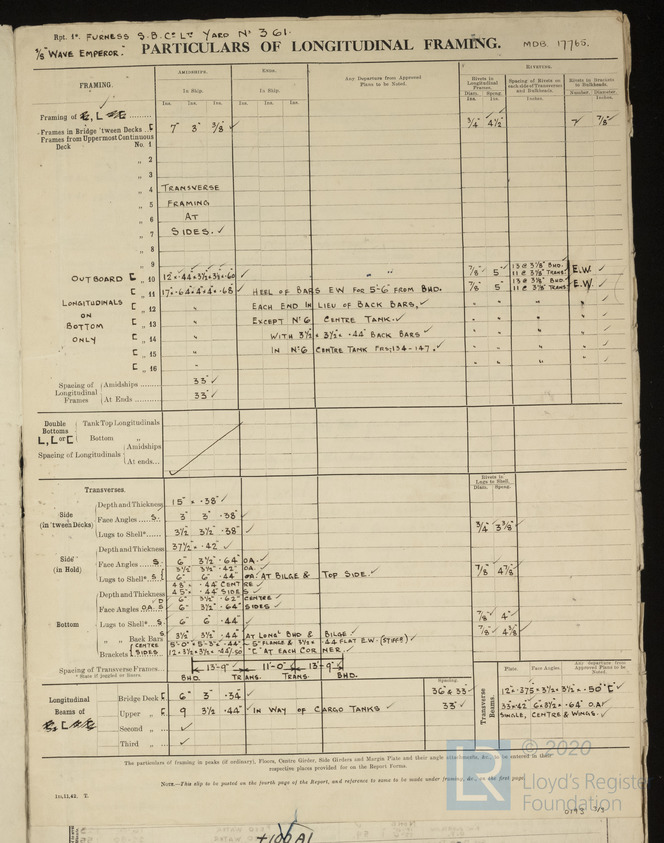 Rpt. 1*. FURNESS S.B. Co Ld YARD No 361.
S/S "WAVE EMPEROR".
PARTICULARS OF LONGITUDINAL FRAMING.
MDB. 17765.
FRAMING.
AMIDSHIPS.
ENDS.
Any Departure from Approved Plans to be Noted.
RIVETING.
In Ship.
In Ship.
Rivets in Longitudinal Frames.
Spacing of Rivets on each side of Transverses and Bulkheads.
Rivets in Brackets to Bulkheads.
Ins. Ins. Ins. Ins. Ins. Ins.
Diam. Ins. Spcng. Ins. Inches. Number. Diameter. Inches.
Framing of
Frames in Bridge 'tween Decks [ 7" 3" 3/8 3/4" 4 1/2" 7 7/8"
Frames from Uppermost Continuous Deck No. 1
„ 2
„ 3
„ 4 TRANSVERSE
„ 5 FRAMING
„ 6 AT
„ 7 SIDES.
„ 8
„ 9
OUTBOARD [ „ 10 12" × .44 × 3 1/2 × 3 1/2 × .60 " " 7/8" 5" 13 @ 3 1/8" BHD. 11 @ 3 1/8" TRANS. E.W.
[ „ 11 17" × .64 × 4" × 4" × .68 HEEL OF BARS EW FOR 5'-6" FROM BHD. 7/8" 5" 13 @ 3 1/8" BHD. 11 @ 3 1/8" TRANS. E.W.
LONGITUDINALS [ „ 12 " EACH END IN LIEU OF BACK BARS,
ON [ „ 13 " EXCEPT No 6 CENTRE TANK.
BOTTOM [ „ 14 " WITH 3 1/2" × 3 1/2" × .44" BACK BARS
ONLY [ „ 15 " IN No 6 CENTRE TANK FRS; 134-147.
[ „ 16 "
Spacing of Longitudinal Frames
Amidships 33"
At Ends 33"
Double Bottoms L, L or [
Tank Top Longitudinals
Bottom „
Spacing of Longitudinals
Amidships
At ends
Transverses.
Rivets in Lugs to Shell.
Diam. Spcng.
Side (in 'tween Decks)
Depth and Thickness 15" × .38"
Face Angles S. 3" 3" .38"
Lugs to Shell* 3 1/2 3 1/2 .38" 3/4" 3 3/8"
Side (in Hold)
Depth and Thickness 37 1/2" × .42"
Face Angles S. 6" 3 1/2" .64" OA.
Lugs to Shell* S. 3 1/2" 3 1/2" .42" OA.
6" 6" .44" OA. AT BILGE & TOP SIDE. 7/8" 4 7/8"
Bottom
Depth and Thickness 48" × .44" CENTRE
45" × .44" SIDES
Face Angles OA. S. 6" 3 1/2" .62" CENTRE
6" 3 1/2" .64" SIDES
Lugs to Shell* S. 6" 6" .44" 7/8" 4"
„ „ Back Bars S. 3 1/2" 3 1/2" .44" AT LONGL BHD & BILGE 7/8" 4 3/8"
Brackets { CENTRE 5'-0" × 5'-3" × .44" 5" FLANGE & 3 1/2" × .44 FLAT E.W. (STIFF'S)
SIDES. 12 × 3 1/2 × 3 1/2 × .44/.50 "[" AT EACH CORNER
Spacing of Transverse Frames 13'-9" 11'-0" 13'-9"
* State if joggled or liners. BHD. TRANS. TRANS. BHD.
Longitudinal Beams of
Spacing.
Bridge Deck [ 6" 3" .34" 36" & 33"
Upper „ [ 9 3 1/2 .44" IN WAY OF CARGO TANKS 33"
Second „
Third „
Transverse Beams.
Plate Face Angles. Any departure from Approved Plans to be Noted.
12" × .375 × 3 1/2 × 3 1/2 × .50 "["
33" × .42" 6 × 3 1/2 × .64" O.A.
SINGLE, CENTRE & WINGS.
The particulars of framing in peaks (if ordinary), Floors, Centre Girder, Side Girders and Margin Plate and their angle attachments, &c., to be entered in their
respective places provided for on the Report Forms.
NOTE.—This slip to be pasted on the fourth page of the Report, and reference to same to be made under framing, &c., on the first page.
© 2020
LR
Lloyd's Register
Foundation
+100A1